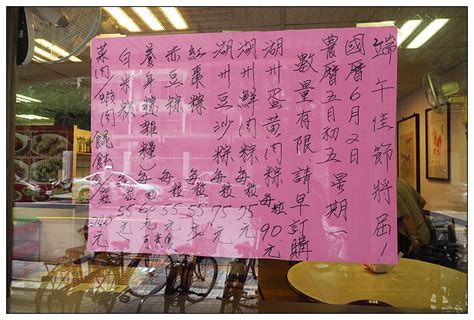 端午佳節將屆!
國曆6月2日
農曆五月初五 星期一
數量有限 請早訂購
湖州蛋黃肉粽 每粒90元
湖州鮮肉粽 每粒75元
湖州豆沙粽 每粒75元
紅棗粽 每粒55元
赤豆粽 每粒55元
養身雜糧粽 每粒60元
白米粽 每粒55元
菜肉/鮮肉餛飩 240元